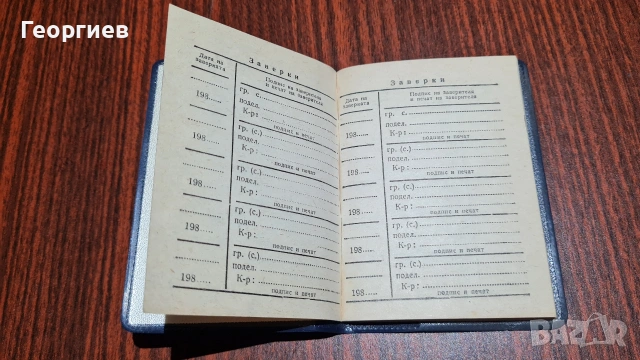 Георгиев
Заверки
Дата на заверката
Подпис на заверителя
и печат на заверителя
гр. с.
198.....
подел.
К-р:
подпис и печат
гр. (с.)
198.....
подел.
К-р:
подпис и печат
гр. (с.)
198.....
подел.
К-р:
подпис и печат
гр. (с.)
198.....
подел.
К-р:
подпис и печат
гр. (с.)
подел.
198.....
К-р:
подпис и печат
Заверки
Дата на заверката
Подпис на заверителя
и печат на заверителя
гр. с.
подел.
198.....
К-р:
подпис и печат
гр. (с.)
подел.
198.....
К-р:
подпис и печат
гр. (с.)
подел.
198.....
К-р:
подпис и печат
гр. (с.)
подел.
198.....
К-р:
подпис и печат
гр. (с.)
подел.
198.....
К-р:
подпис и печат
BAZAR